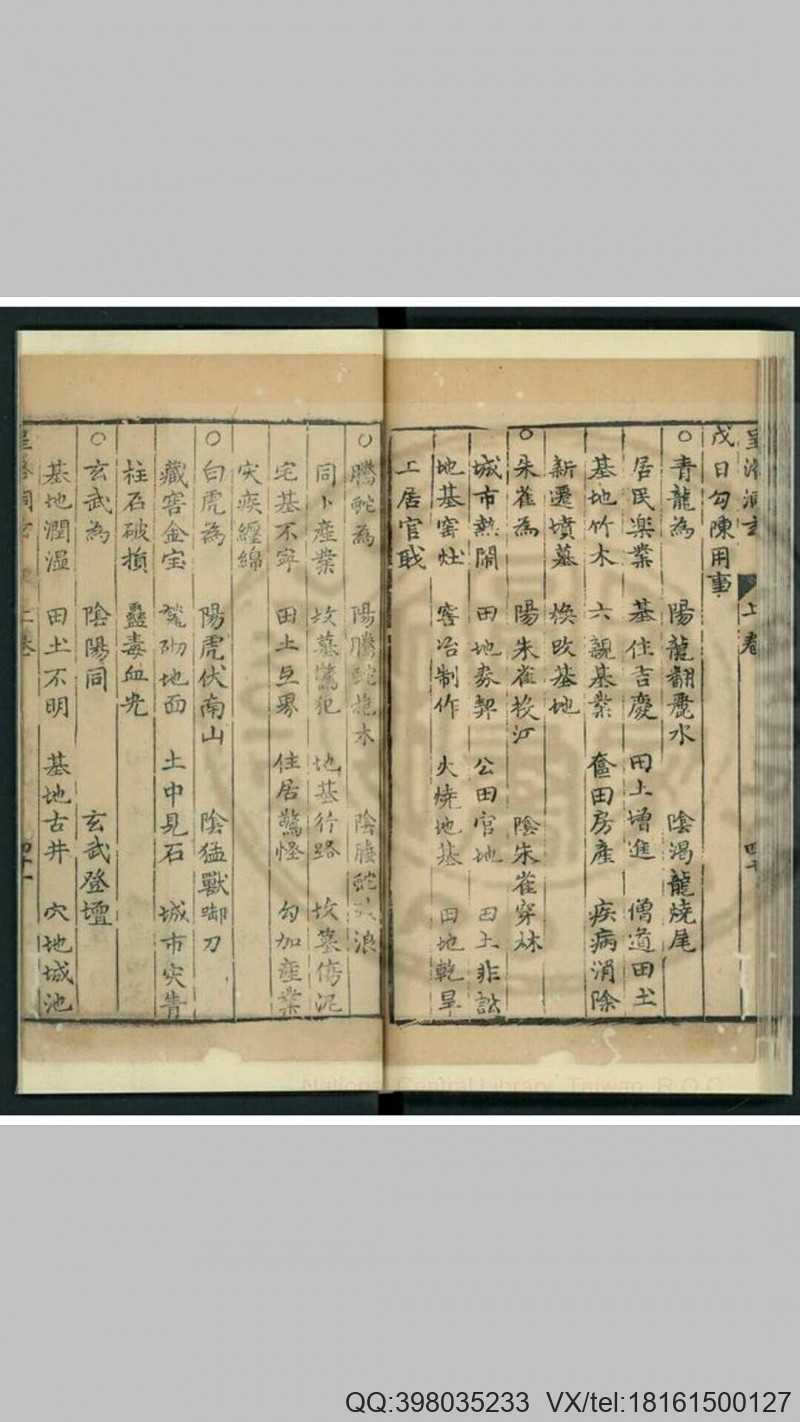 上卷
戊日勾陳用事
○青龍為 陽龍翻䨇水 陰渴龍燒尾
居民楽業 基住吉慶 田土增進 僧道田土
基地竹木 六親基業 奩田房産 疾病消除
新遷墳墓 換改基地
○朱雀為 陽朱雀投江 陰朱雀穿林
城市熱閙 田地券契 公田官地 田土非訟
地基窰灶 窑冶制作 火燒地基 田地乾旱
工居官戢
○騰蛇為 陽騰蛇 木 陰騰蛇 浪
同卜産業 坟墓驚犯 地基行路 坟墓傍泥
宅基不寧 田土互界 住居驚怪 勾加産業
灾疾纏綿
○白虎為 陽虎伏南山 陰猛獸啣刀
藏窖金宝 砌地面 土中見石 城市灾眚
柱石破損 蠱毒血光
○玄武為 陰陽同 玄武登壇
基地潤濕 田土不明 基地古井 穴地城池
上卷 四十一
National Central Library, Taiwan, R.O.C
QQ:398035233 VX/tel:18161500127